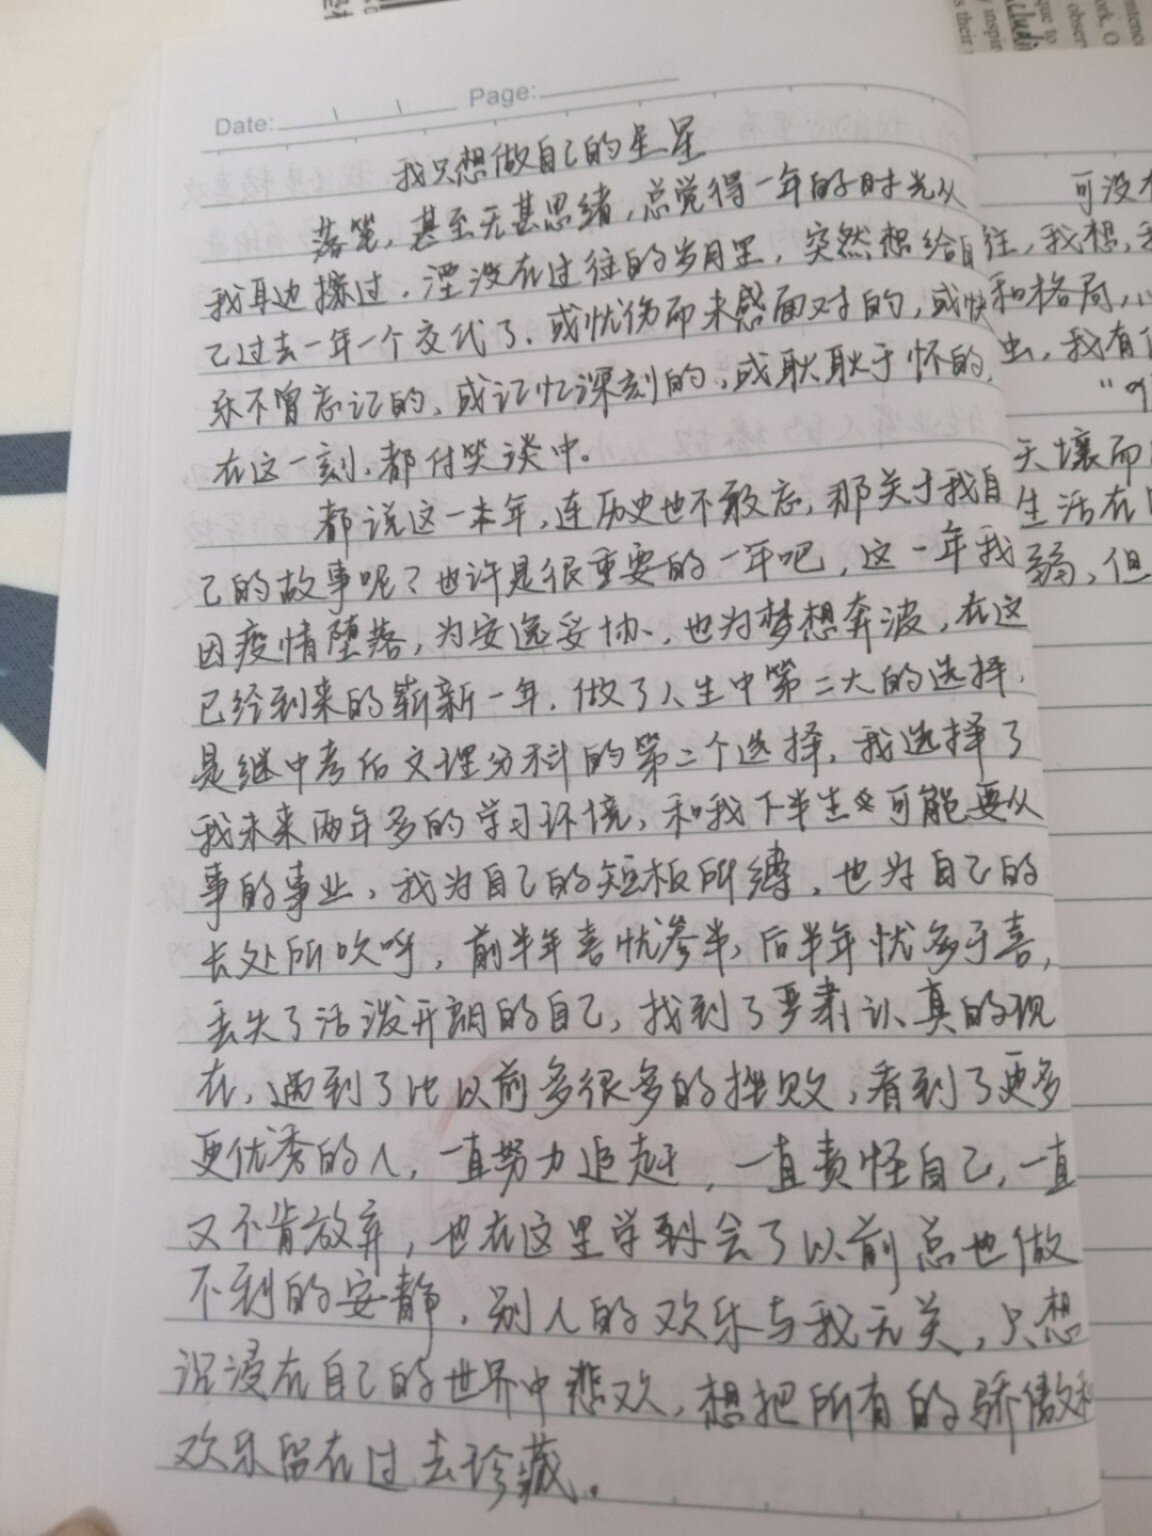 Date:
Page:
我只想做自己的星星
落笔，甚至无甚思绪，总觉得一年的时光从
我耳边擦过，湮没在过往的岁月里，突然想给自
己过去一年一个交代了，或忧伤而未感面对的，或快
乐不曾忘记的，或记忆深刻的，或耿耿于怀的，
在这一刻，都付笑谈中。
都说这一本年，连历史也不敢忘，那关于我自
己的故事呢？也许是很重要的一年吧，这一年我
因疫情堕落，为安逸妥协，也为梦想奔波，在这
已经到来的崭新一年，做了人生中第二大的选择，
是继中考后文理分科的第二个选择，我选择了
我未来两年多的学习环境，和我下半生可能要从
事的事业，我为自己的短板所缚，也为自己的
长处所欢呼，前半年喜忧参半，后半年忧多于喜，
丢失了活泼开朗的自己，找到了严肃认真的现
在，遇到了比以前多很多的挫败，看到了更多
更优秀的人，一直努力追赶，一直责怪自己，一直
又不肯放弃，也在这里学会了以前总也做
不到的安静，别人的欢乐与我无关，只想
沉浸在自己的世界中悲欢，想把所有的骄傲和
欢乐留在过去珍藏。
可没
往，我想，
和格局，
虫，我有
天壤而
生活在
弱，但